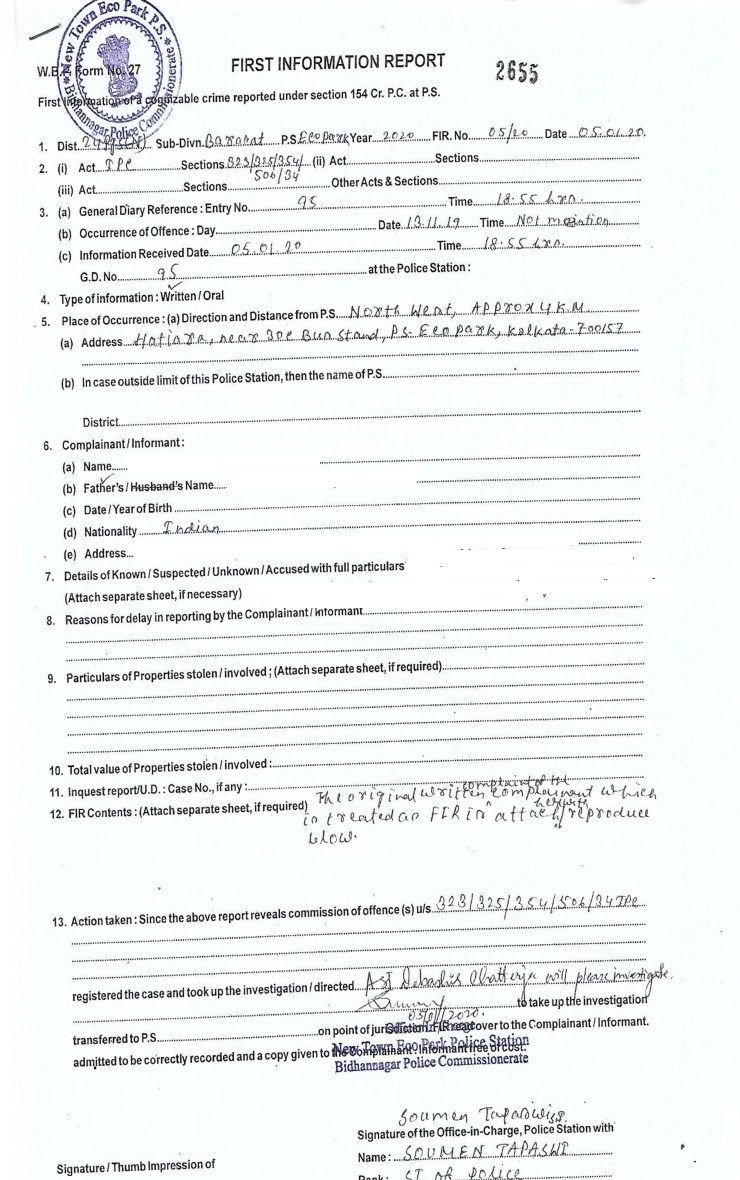 New Town Eco Park P.S.
Bidhannagar Police Commissionerate
FIRST INFORMATION REPORT
2655
W.B.P. Form No. 27
First Information of a cognizable crime reported under section 154 Cr. P.C. at P.S.
1. Dist. 24 Pgs(N) Sub-Divn. Barasat P.S. Eco Park Year 2020 FIR. No. 05/20 Date 05.01.20.
2. (i) Act IPC Sections 323/325/354/ (ii) Act Sections
506/34
(iii) Act Sections Other Acts & Sections
3. (a) General Diary Reference : Entry No. 95 Time 18.55 hrs.
(b) Occurrence of Offence : Day Date 13.11.19 Time Not mention
(c) Information Received Date 05.01.20 Time 18.55 hrs.
G.D. No. 95 at the Police Station :
4. Type of information : Written / Oral
5. Place of Occurrence : (a) Direction and Distance from P.S. North West, APPROX 4 K.M.
(a) Address Hatiara, near 30C Bus Stand, PS- Eco park, Kolkata-700157
(b) In case outside limit of this Police Station, then the name of P.S.
District
6. Complainant / Informant :
(a) Name
(b) Father's / Husband's Name
(c) Date / Year of Birth
(d) Nationality Indian
(e) Address
7. Details of Known / Suspected / Unknown / Accused with full particulars
(Attach separate sheet, if necessary)
8. Reasons for delay in reporting by the Complainant / Informant
9. Particulars of Properties stolen / involved ; (Attach separate sheet, if required)
10. Total value of Properties stolen / involved :
11. Inquest report/U.D. : Case No., if any :
complaint of the
12. FIR Contents : (Attach separate sheet, if required) The original written complainant which
herewith
is treated as FIR is attach/reproduce
blow.
13. Action taken : Since the above report reveals commission of offence (s) u/s 323/325/354/506/34 IPC
registered the case and took up the investigation / directed ASI Debashis Chatterjee will please investigate.
to take up the investigation
05/01/2020.
transferred to P.S. on point of jurisdiction. FIR read over to the Complainant / Informant.
admitted to be correctly recorded and a copy given to the Complainant. Informant free of cost.
New Town Eco Park Police Station
Bidhannagar Police Commissionerate
Soumen Tapaswi
Signature of the Office-in-Charge, Police Station with
Name : SOUMEN TAPASWI
Signature / Thumb Impression of
Rank : SI of Police